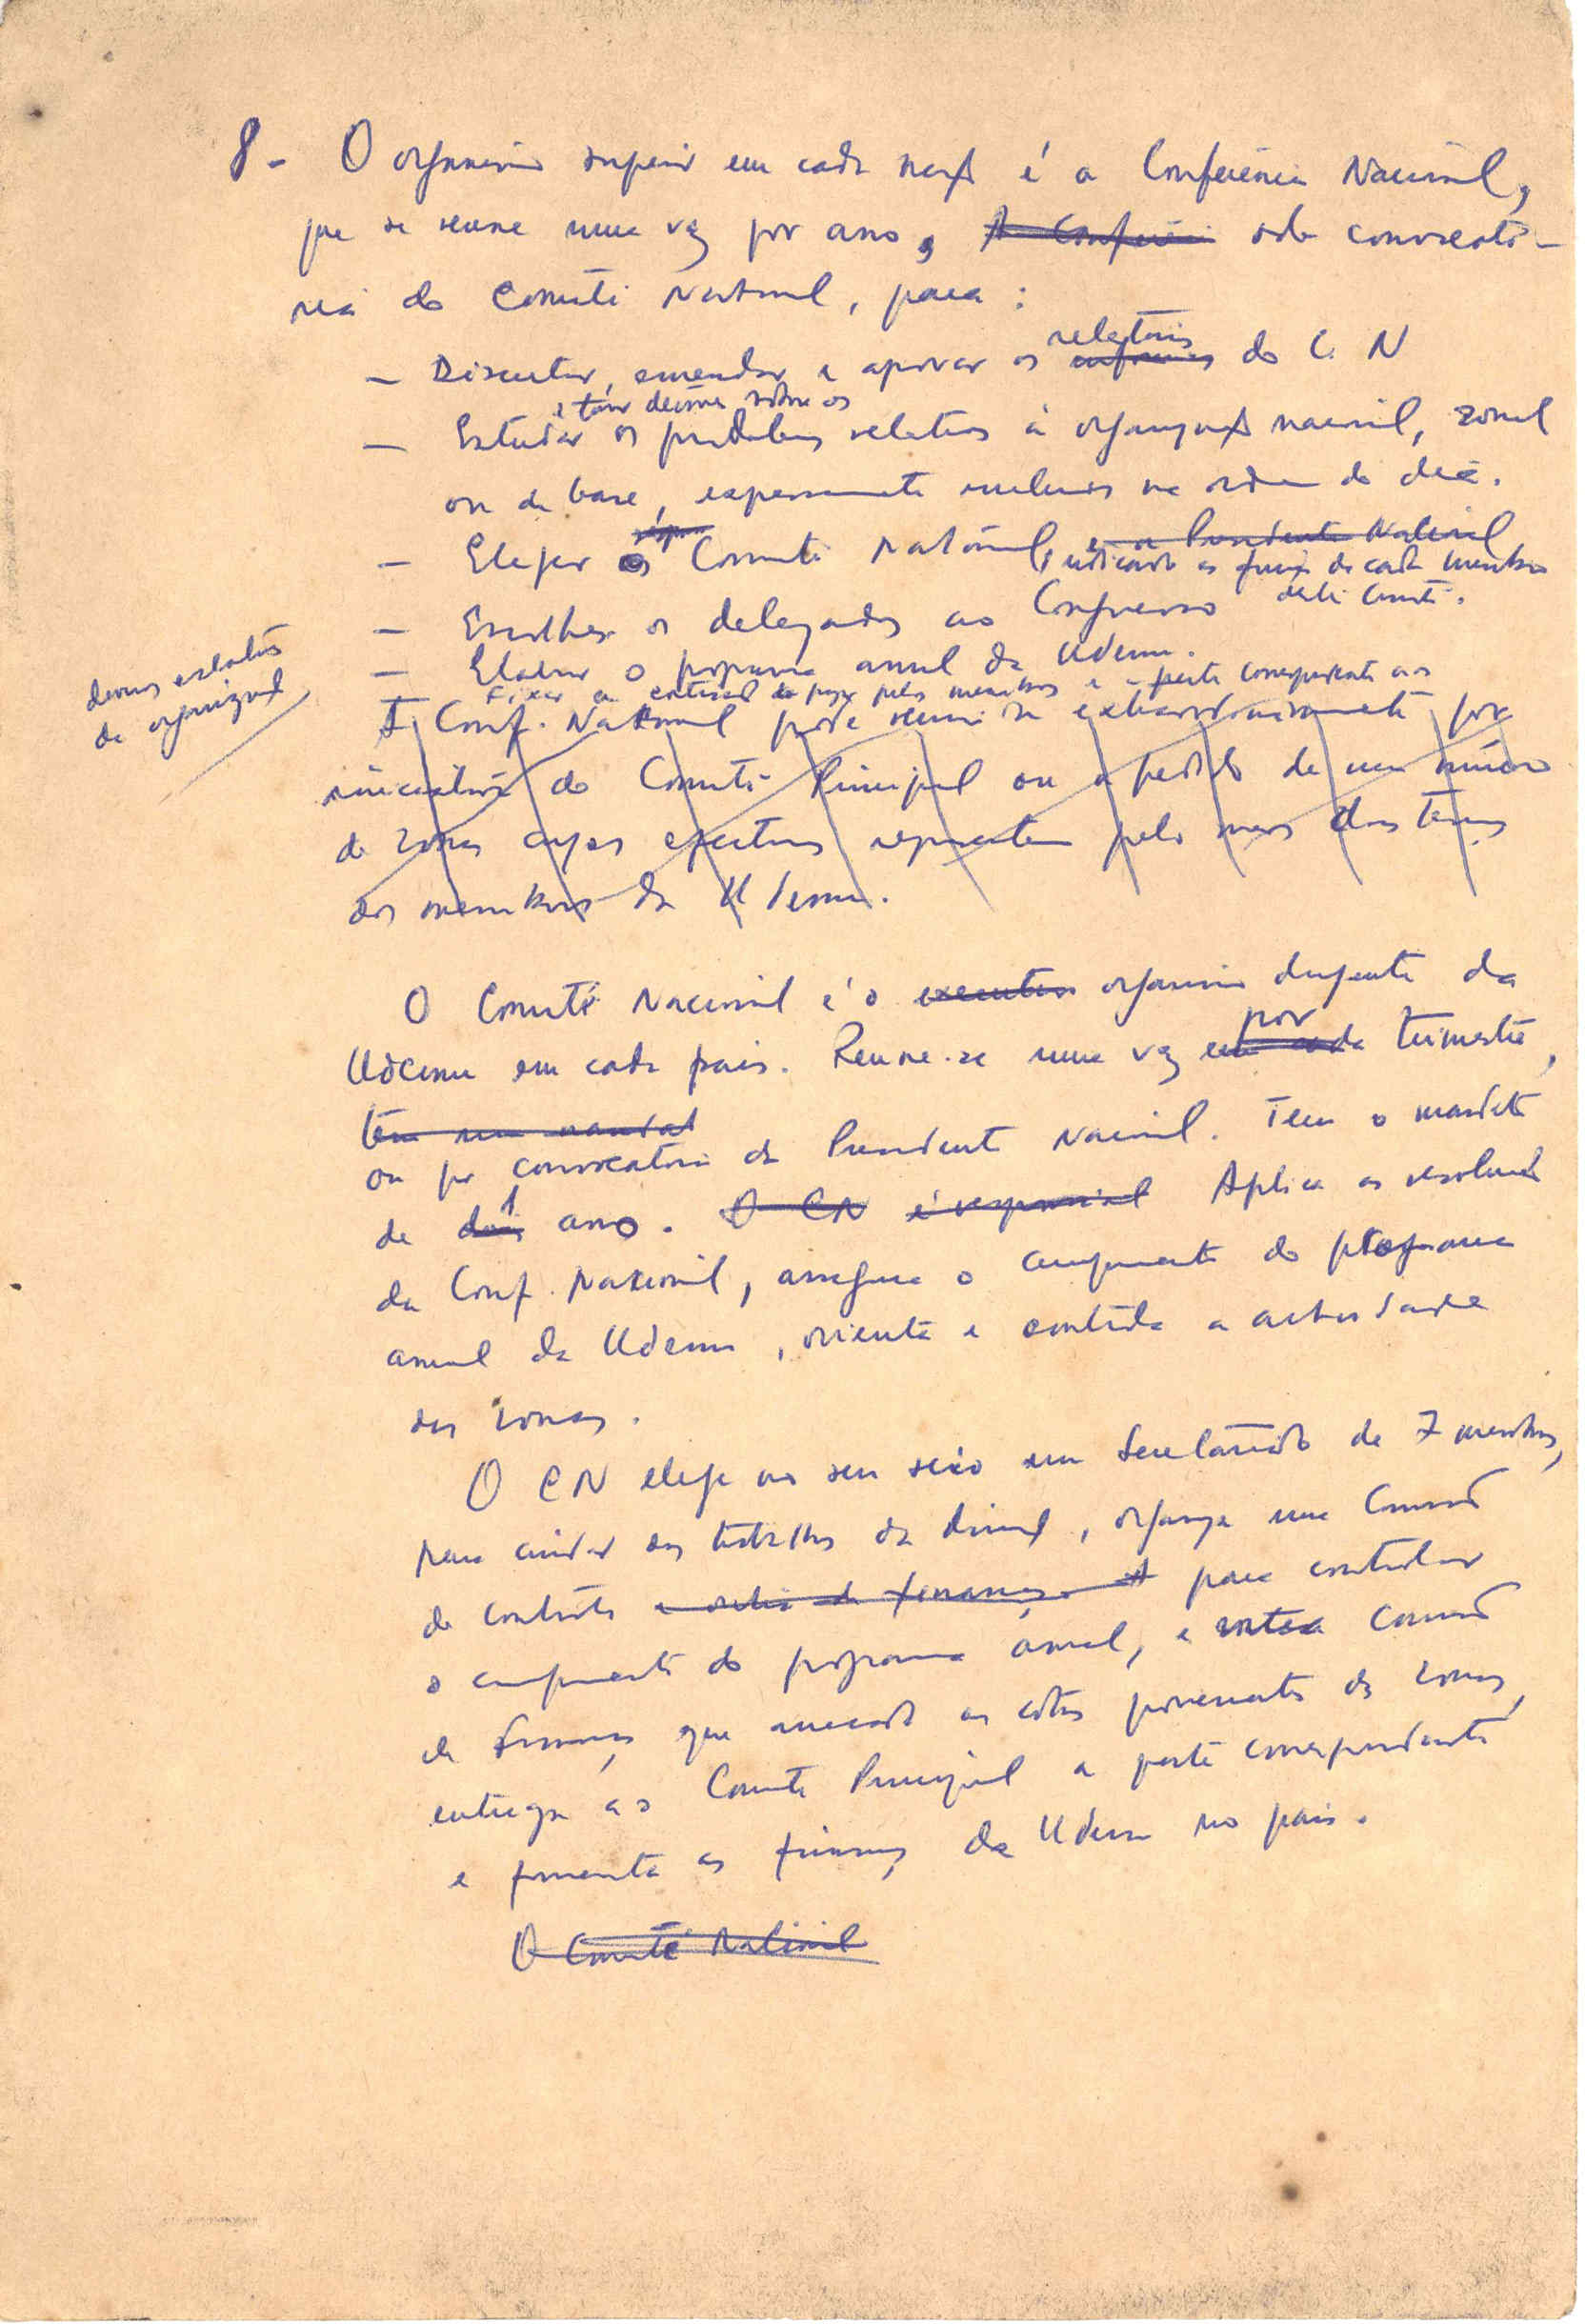 8 - O organismo superior em cada nação é a Conferência Nacional,
que se reune uma vez por ano, A Conferência sob convocató-
ria do Comité Nacional, para :
relatórios
- Discutir, emendar e aprovar os informes do C. N
e tomar decisões sobre os
- Estudar os problemas relativos à organização nacional, zonal
ou de base, expressamente incluidos na ordem do dia.
- Eleger o Comité Nacional, e o Presidente Nacional
indicando as funções de cada membro
deste Comité.
- Escolher os delegados ao Congresso
- Elaborar o programa anual da Udemu.
Fixar a cotização a pagar pelos membros e a parte correspondente aos
demais escalões
da organização
A Conf. Nacional pode reunir-se extraordinariamente por
iniciativa do Comité Principal ou a pedido de um número
de zonas cujos efectivos representem pelo menos dois terços
dos membros da Udemu.
O Comité Nacional é o executivo organismo dirigente da
Udemu em cada país. Reune-se uma vez em cada por trimestre,
tem um mandat
ou por convocatória da Presidente Nacional. Tem o mandato
de dois 1 ano. O CN é responsável Aplica as resoluções
da Conf. Nacional, assegura o cumprimento do programa
anual da Udemu, orienta e controla a actividade
das zonas.
O CN elege no seu seio um Secretariado de 7 membros,
para cuidar dos trabalhos da direcção, organiza uma Comissão
de Controle para controlar
o cumprimento do programa anual, e outra Comissão
de Finanças que arrecada as cotas provenientes das zonas,
entrega ao Comité Principal a parte correspondente
e fomenta as finanças da Udemu no país.
O Comité Nacional